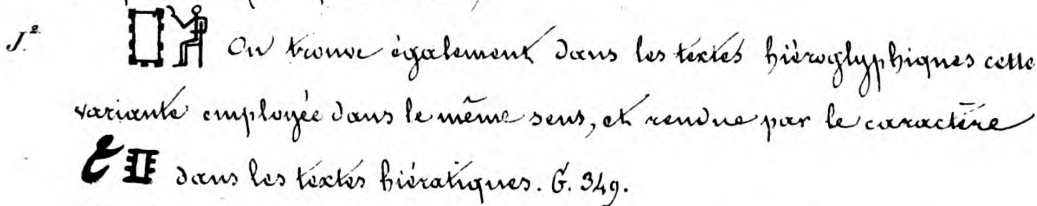 J.² On trouve également dans les textes hiéroglyphiques cette
variante employée dans le même sens, et rendue par le caractère
dans les textes hiératiques. G. 349.